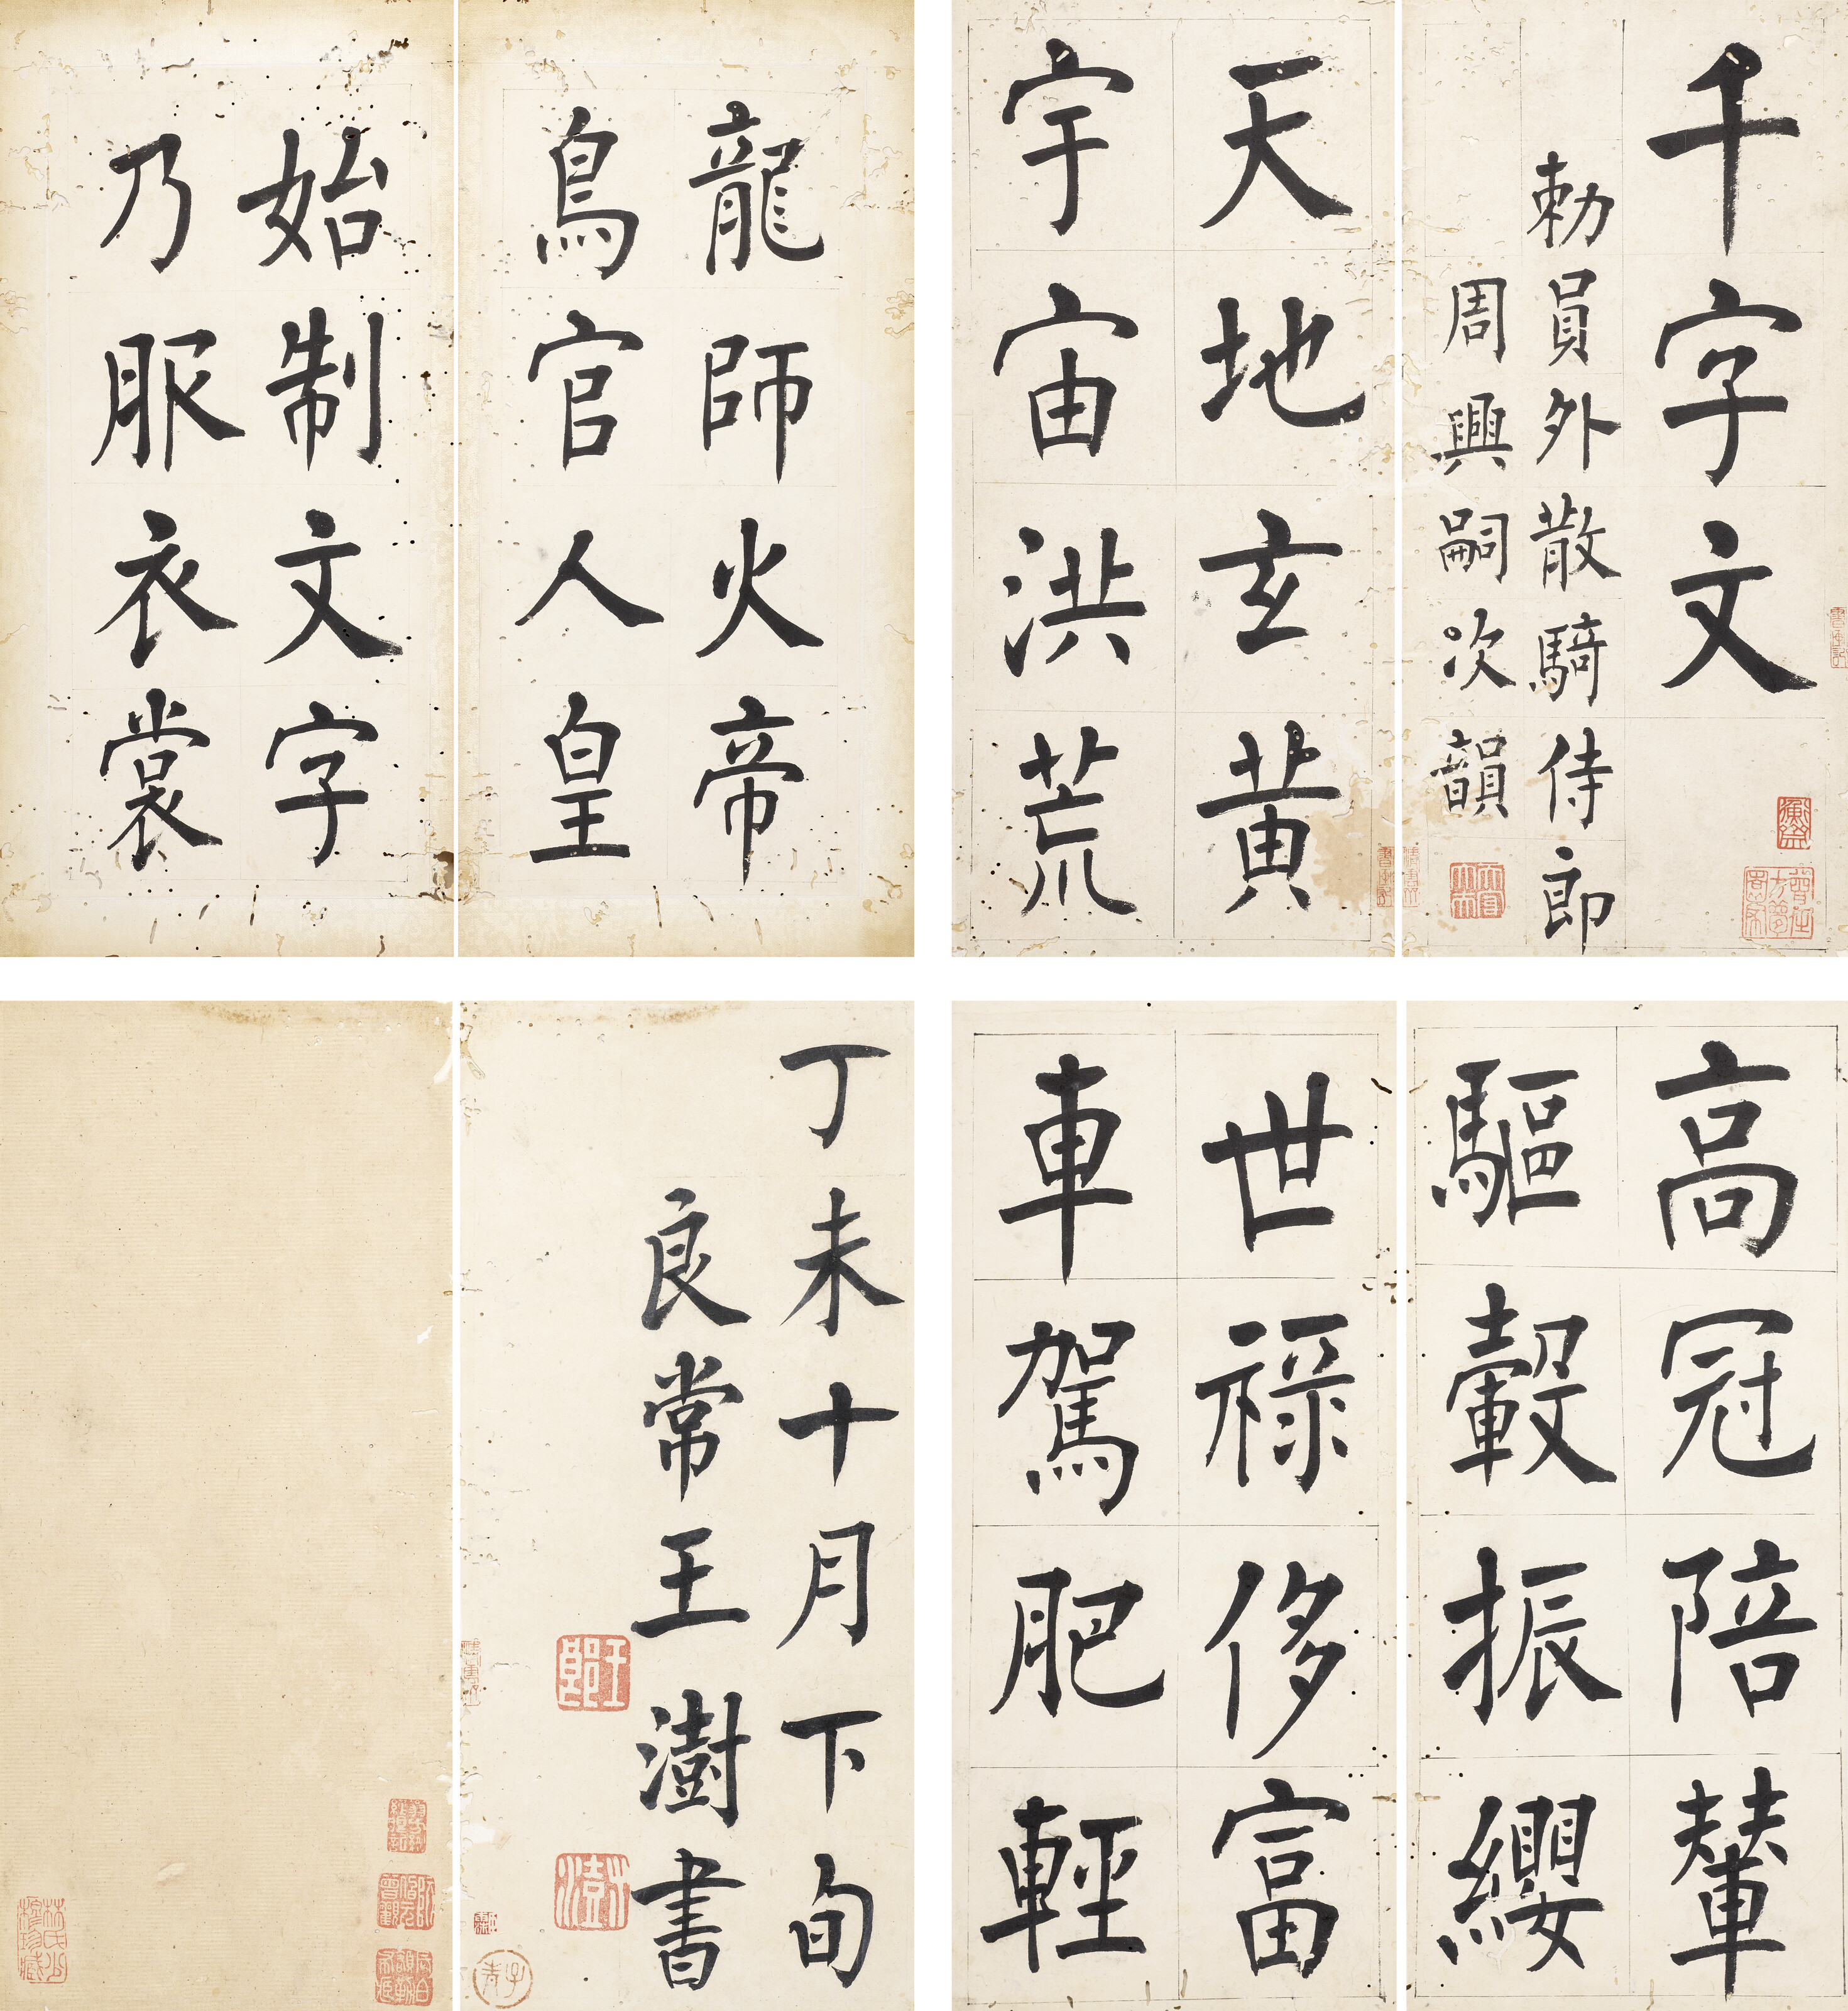 千字文
勅員外散騎侍郎
周興嗣次韻
天地玄黃
宇宙洪荒
龍師火帝
鳥官人皇
始制文字
乃服衣裳
高冠陪輦
驅轂振纓
世祿侈富
車駕肥輕
丁未十月下旬
良常王澍書